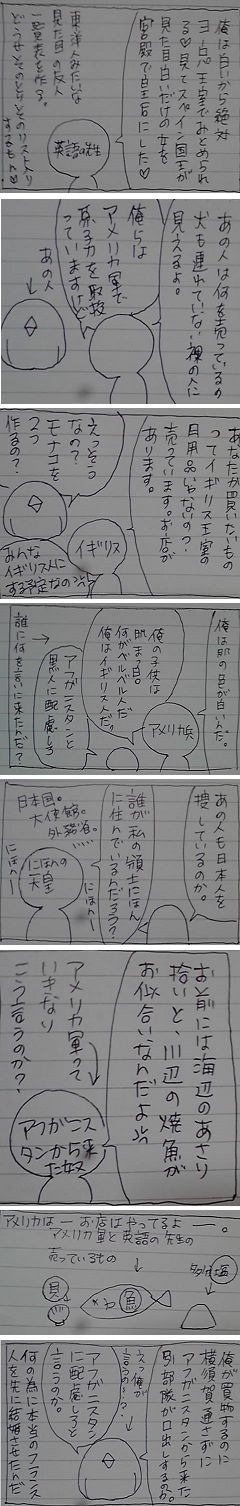 俺は白いから絶対
ヨーロッパ王室でみとめられ
る♡見てスペイン国王が
見た目白いだけの女を
宮殿で皇后にした♡
英語の先生
東洋人みたいな
見た目の友人
一覧表を作る。
あの人は何を売っているの
犬も連れていない裸の人に
見えるよ。
俺らは
アメリカ軍で
原子力を取扱
っていますけど
あの人
あなたが買いたいもの
ってイギリス王室の
日用品いらないの？
売っています。お店が
あります。
イギリス
えっそう
なの？
モナコを
2つ
作るの？
みんな
イギリス人に
する予定なの
俺は肌の色が白いんだ。
アメリカ兵
俺の子供は
肌まっ白。
何がベルベル人だ
俺はイギリス人だ。
アフガニスタンと
黒人に配慮しろ
誰に何を言いに来たんだ？
あの人も日本人を
捜しているのか。
誰が私の領土にほん
に住んでいるんだろう？
にほんー
にほんの
天皇
日本国。
大使館。
外務省。
にほんー
お前には海辺のあさり
拾いと、川辺の焼魚が
お似合いなんだよ
アフガニス
タンから来
た奴
アメリカ軍って
いきなり
こう言うのか？
アメリカはーお店はやってるよー。
アメリカ軍と英語の先生の
売っているもの
貝
魚
塩
俺が買物するのに
横須賀通さずに
アフガニスタンから来た
別部隊が口出しするのか。
えっ俺が
言うの〜？
アフガニスタン
に配慮しろと
言うのか。
何の為に本当のフランス
人を先に結婚させたんだ